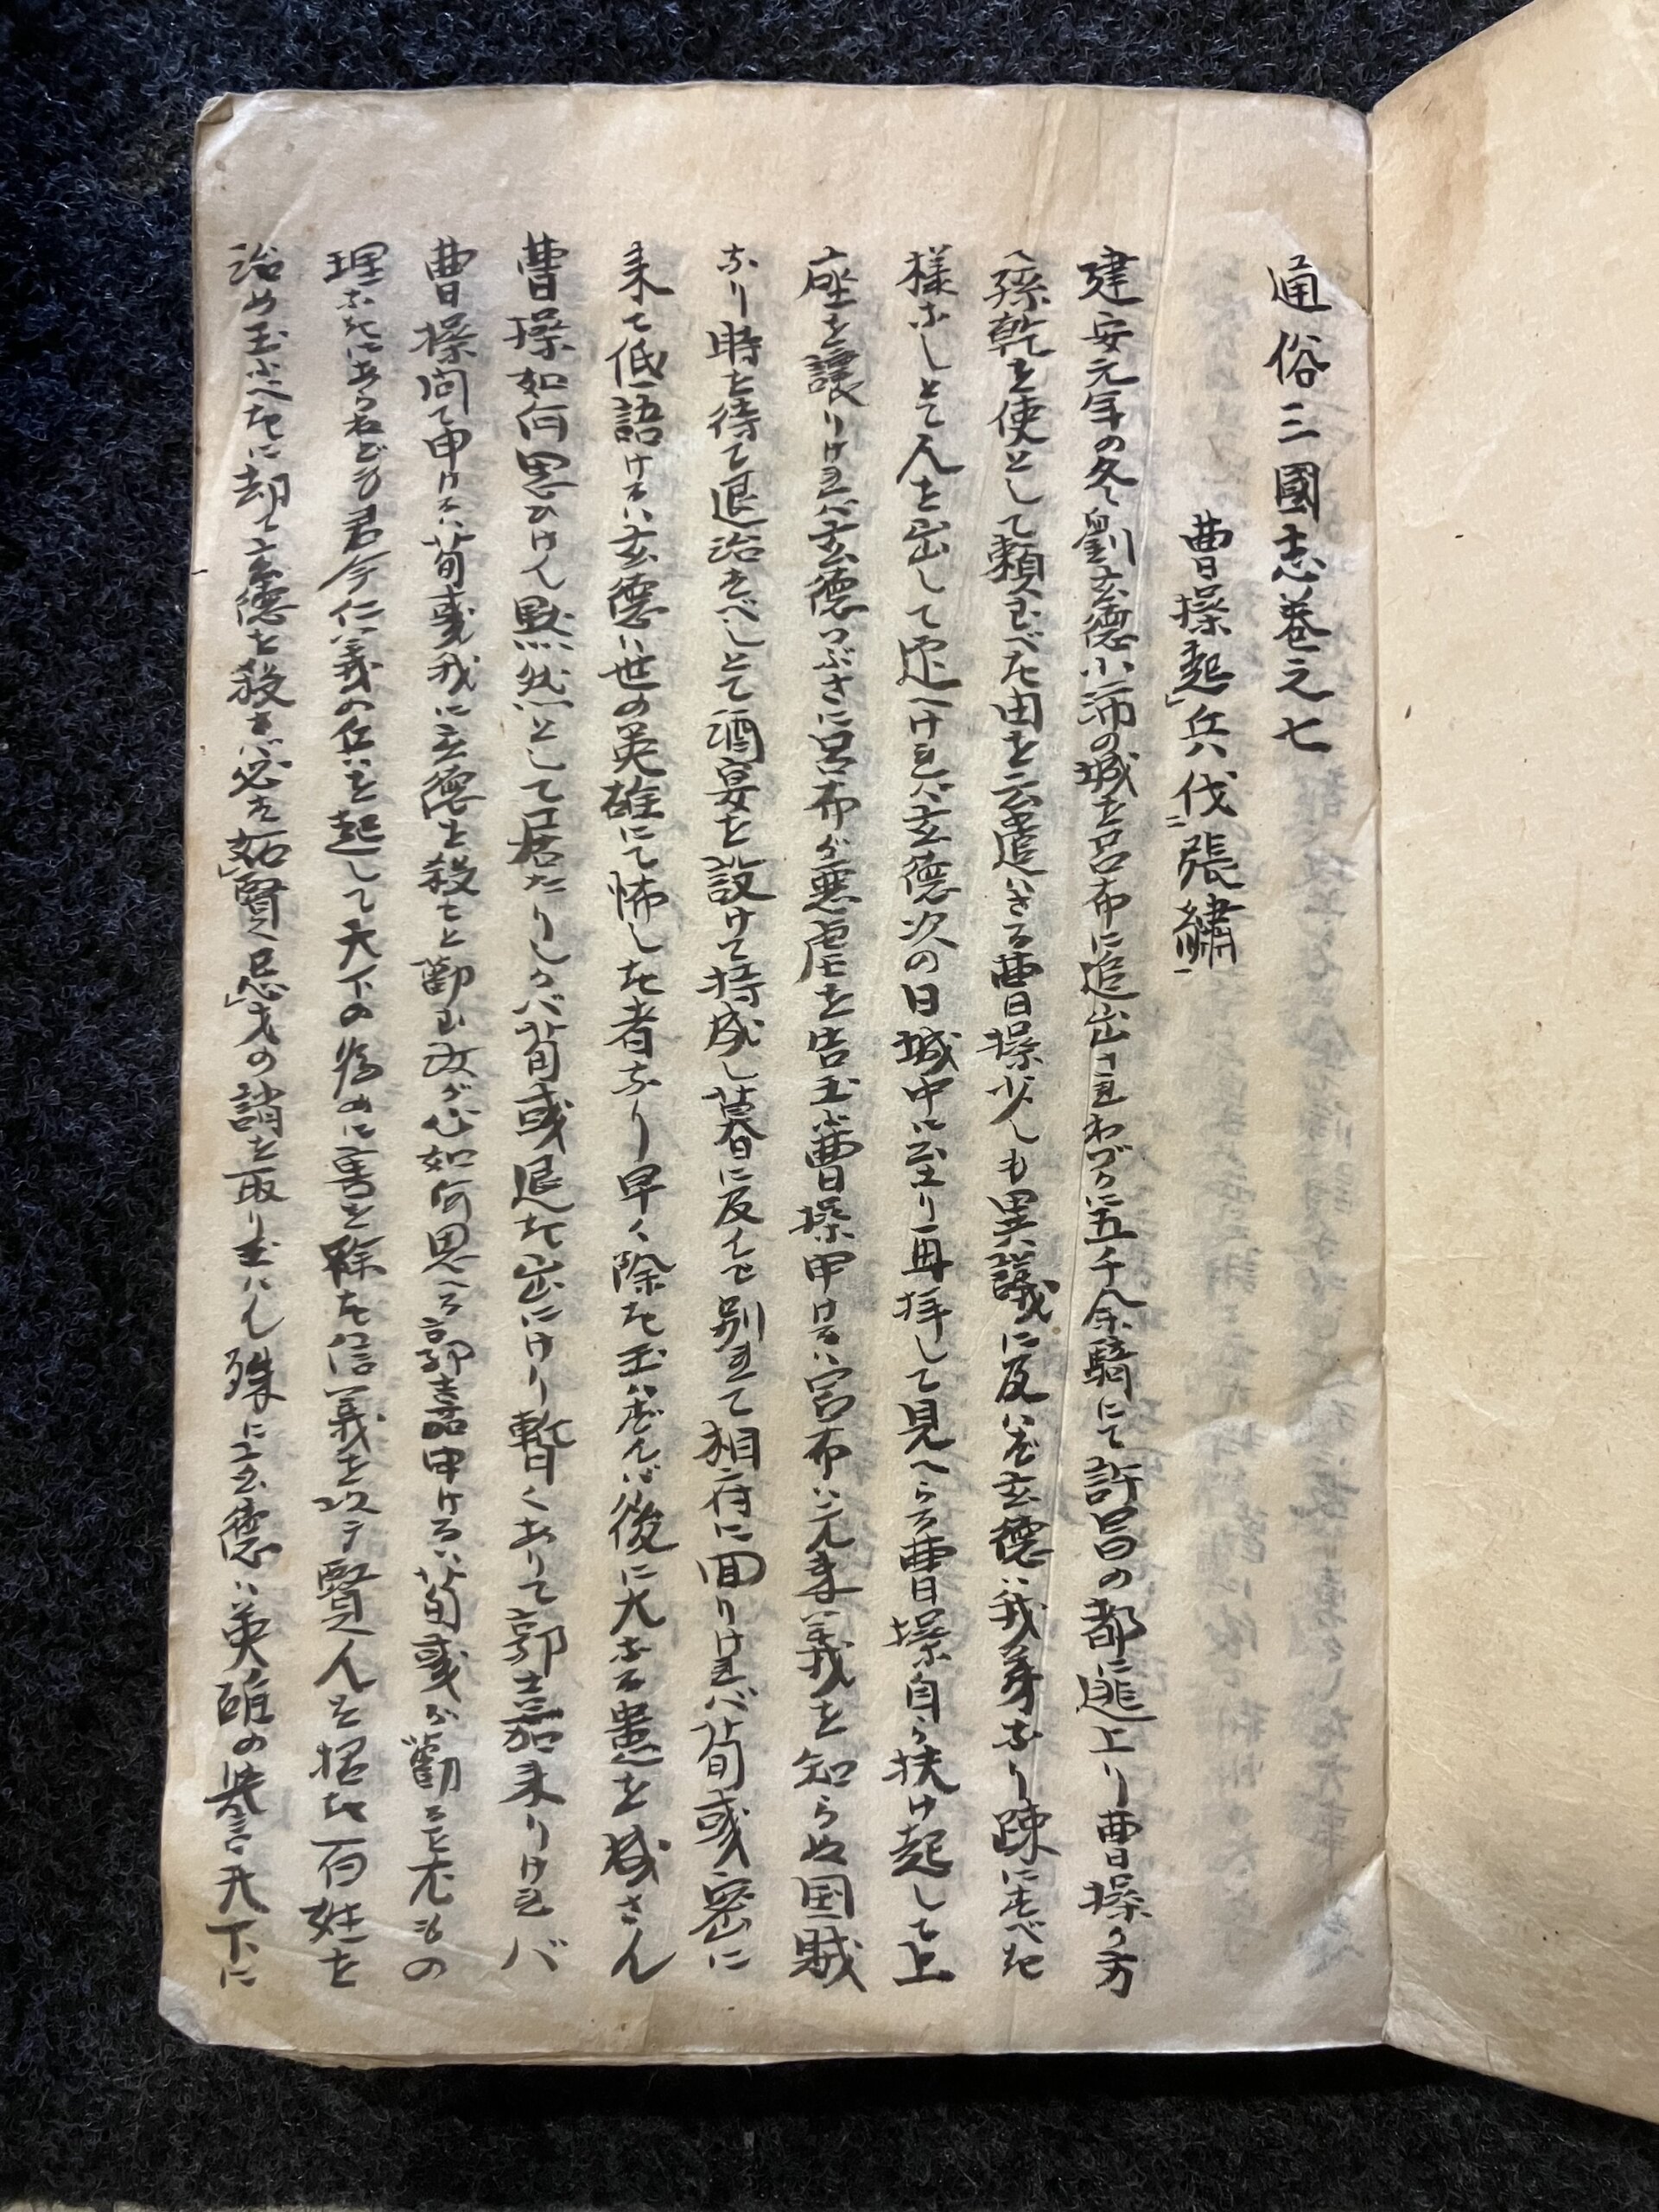 通俗三國志巻之七
曹操起兵伐張繡
建安元年の冬劉玄德小沛の城を呂布に追出されわづかに五千余騎にて許昌の都に逃上り曹操の方
へ孫乾を使として頼玉べき由を云遣はさる曹操少しも異議に及ばず玄德は我弟なり疎にすべき
様なしとて人を出して迎へければ玄德次の日城中に至り再拝して見へらる曹操自ら扶け起して上
座を譲りければ玄德つぶさに呂布が悪虐を告玉ふ曹操申けるは呂布は元来義を知らぬ国賊
なり時を待て退治すべしとて酒宴を設けて持成し暮に及んで別れて相府に回りければ荀彧密に
来て低語けるは玄德は世の英雄にて怖しき者なり早く除き玉はずんば後に大なる患を成さん
曹操如何思ひけん黙然として居たりしかば荀彧退き出にけり暫くありて郭嘉来りければ
曹操問て申けるは荀彧我に玄德を殺せと勧む汝が心如何思へる郭嘉申けるは荀彧が勧る尤もの
理なきにあらねども君今仁義の兵を起して天下の為めに害を除き信義を以テ賢人を招き百姓を
治め玉ふべきに却て玄德を殺さば必ず妬賢忌才の誚を取り玉はん殊に玄德は英雄の誉天下に